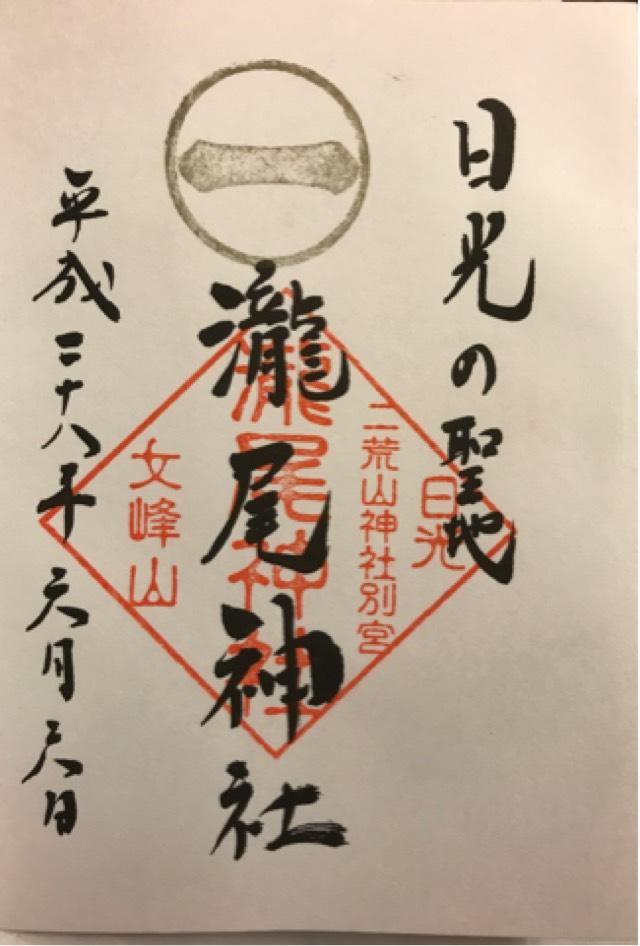 日光の聖地
日光
二荒山神社別宮
瀧尾神社
瀧尾神社
女峰山
一
平成二十八年六月六日